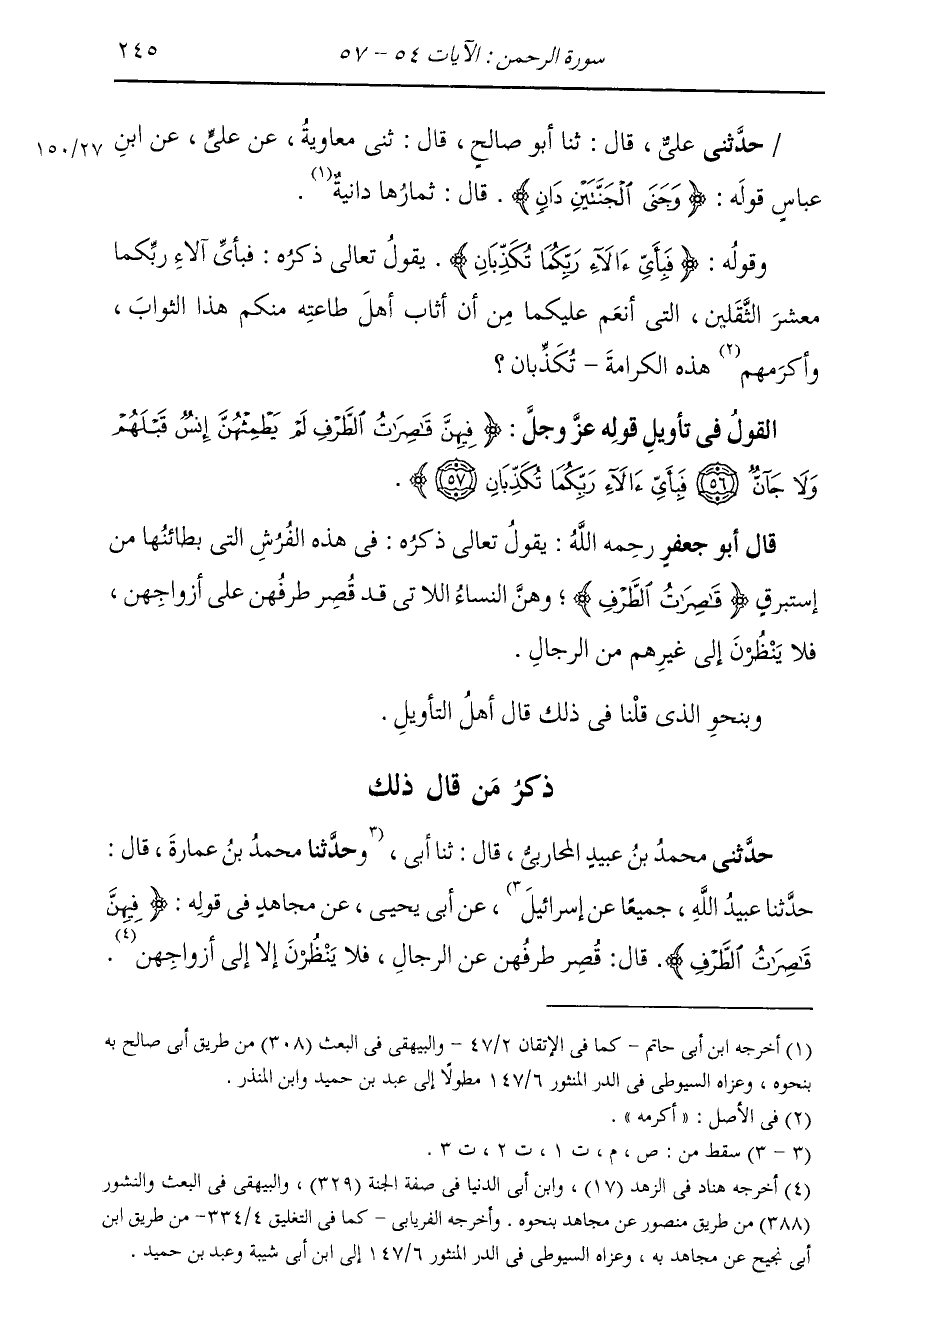 سورة الرحمن : الآيات ٥٤ – ٥٧ ٢٤٥
/ حدَّثنى علىٌّ ، قال : ثنا أبو صالحٍ ، قال : ثنى معاويةُ ، عن علىٍّ ، عن ابنِ ١٥٠/٢٧
عباسٍ قولَه : ﴿ وَجَنَى ٱلْجَنَّتَيْنِ دَانٍ ﴾ . قال : ثمارُها دانيةٌ(١) .
وقولُه : ﴿ فَبِأَىِّ ءَالَآءِ رَبِّكُمَا تُكَذِّبَانِ ﴾ . يقولُ تعالى ذكرُه : فبأىِّ آلاءِ ربِّكما
معشرَ الثَّقَلين ، التى أنعَم عليكما مِن أن أثاب أهلَ طاعتِه منكم هذا الثوابَ ،
وأكرَمهم(٢) هذه الكرامةَ – تُكَذِّبان ؟
القولُ فى تأويلِ قولِه عزَّ وجلَّ : ﴿ فِيهِنَّ قَٰصِرَٰتُ ٱلطَّرْفِ لَمْ يَطْمِثْهُنَّ إِنسٌ قَبْلَهُمْ
وَلَا جَآنٌّ ﴿٥٦﴾ فَبِأَىِّ ءَالَآءِ رَبِّكُمَا تُكَذِّبَانِ ﴿٥٧﴾ ﴾ .
قال أبو جعفرٍ رحِمه اللَّهُ : يقولُ تعالى ذكرُه : فى هذه الفُرُشِ التى بطائنُها من
إستبرقٍ ﴿ قَٰصِرَٰتُ ٱلطَّرْفِ ﴾ ؛ وهنَّ النساءُ اللاتى قد قُصِر طرفُهن على أزواجِهن ،
فلا يَنْظُرْنَ إلى غيرِهم من الرجالِ .
وبنحوِ الذى قلْنا فى ذلك قال أهلُ التأويلِ .
ذكرُ مَن قال ذلك
حدَّثنى محمدُ بنُ عبيدٍ المحاربىُّ ، قال : ثنا أبى ، (٣وحدَّثنا محمدُ بنُ عمارةَ ، قال :
حدَّثنا عبيدُ اللَّهِ ، جميعًا عن إسرائيلَ٣) ، عن أبى يحيى ، عن مجاهدٍ فى قولِه : ﴿ فِيهِنَّ
قَٰصِرَٰتُ ٱلطَّرْفِ ﴾. قال: قُصِر طرفُهن عن الرجالِ ، فلا يَنْظُرْنَ إلا إلى أزواجِهن(٤) .
(١) أخرجه ابن أبى حاتم – كما فى الإتقان ٤٧/٢ – والبيهقى فى البعث (٣٠٨) من طريق أبى صالح به
بنحوه ، وعزاه السيوطى فى الدر المنثور ١٤٧/٦ مطولًا إلى عبد بن حميد وابن المنذر .
(٢) فى الأصل : « أكرمه » .
(٣ – ٣) سقط من : ص ، م ، ت ١ ، ت ٢ ، ت ٣ .
(٤) أخرجه هناد فى الزهد (١٧) ، وابن أبى الدنيا فى صفة الجنة (٣٢٩) ، والبيهقى فى البعث والنشور
(٣٨٨) من طريق منصور عن مجاهد بنحوه . وأخرجه الفريابى – كما فى التغليق ٣٣٤/٤– من طريق ابن
أبى نجيح عن مجاهد به ، وعزاه السيوطى فى الدر المنثور ١٤٧/٦ إلى ابن أبى شيبة وعبد بن حميد .